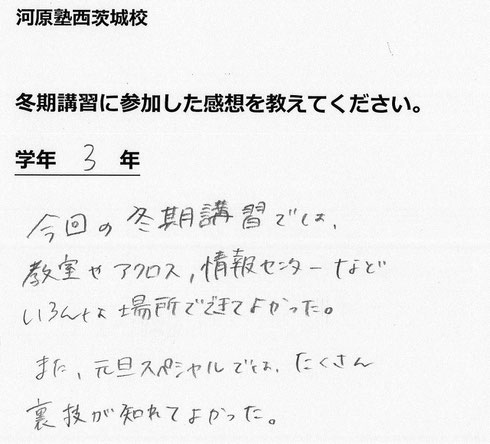 河原塾西茨城校
冬期講習に参加した感想を教えてください。
学年 3 年
今回の冬期講習では、
教室やアクロス,情報センターなど
いろんな場所でできてよかった。
また、元旦スペシャルでは、たくさん
裏技が知れてよかった。